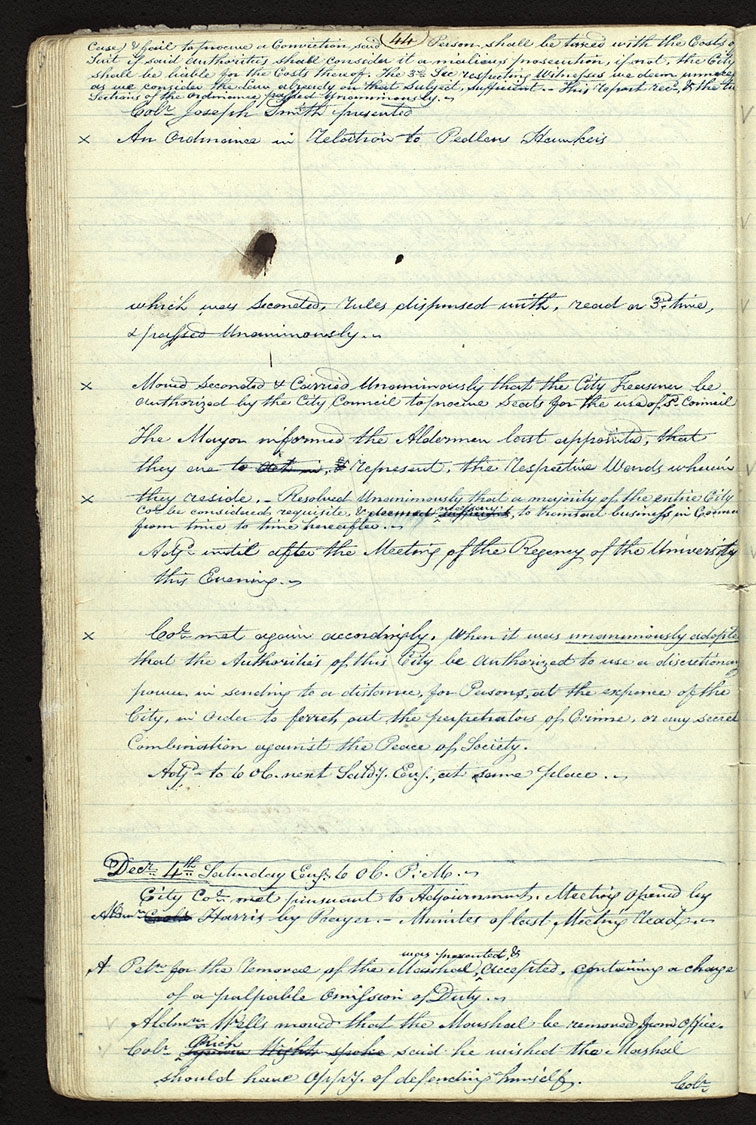 44
Case, & fail to procure a Conviction, said Person shall be taxed with the Costs of
Suit if said Authorities shall consider it a malicious prosecution, if not, the City
shall be liable for the Costs thereof. The 3rd. Sec. respecting Witnesses we deem unneces
as we consider the Law already on that Subject, sufficient. – This report rec'd, & the two
Sections of the Ordinance passed Unanimously.
Colr. Joseph Smith presented
x An Ordinance in Relation to Pedlers Hawkers
which was Seconded, rules dispensed with, read a 3rd. time,
& passed Unanimously.
x Moved Seconded & Carried Unanimously that the City Treasurer be
authorized by the City Council to procure Seats for the use of sd. Council
The Mayor informed the Aldermen last appointed, that
they are to act in, & represent, the respective Wards wherein
x they reside. – Resolved Unanimously that a majority of the entire City
Col. be considered requisite, & deemed sufficient necessary, to transact business in Council
from time to time hereafter.
Adjd. until after the Meeting of the Regency of the University
this Evening.
x Col. met again accordingly, When it was unanimously adopted
that the Authorities of this City be authorized to use a discretionary
power, in sending to a distance, for Persons, at the expence of the
City, in order to ferret out the perpetrators of Crime, or any secret
Combination against the Peace of Society.
Adjd. to 6 OC. next Satdy. Eveg., at same place.
Decr. 4th. Saturday Eveg. 6 OC. P.M.
City Col. met pursuant to Adjournment. Meeting opened by
Aldmn. Harris by Prayer. – Minutes of last Meeting Read.
was presented, &
A Petn. for the removal of the Marshal, accepted, containing a charge
of a palpable Omission of Duty.
Aldmn. Wells moved that the Marshal be removed from Office.
Colr. spoke said he wished the Marshal
should have Oppy. of defending himself.
Colr.